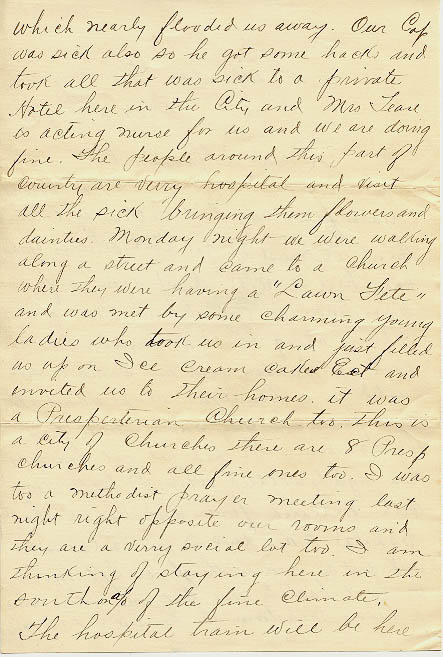 which nearly flooded us away. Our Cap
was sick also so he got some hacks and
took all that was sick to a private
Hotel here in the City and Mrs Teare
is acting nurse for us and we are doing
fine. The people around this part of
county are verry hospital and visit
all the sick bringing them flowers and
dainties. Monday night we were walking
along a street and came to a church
where they were having a "Lawn Fete"
and was met by some charming young
ladies who took us in and just filled
us up on Ice Cream cakes Ect and
invited us to their homes. it was
a Presperterian Church too. This is
a city of Churches there are 8 Presp
churches and all fine ones too. I was
too a methodist prayer meeting last
night right opposite our rooms and
they are a verry social lot too. I am
thinking of staying here in the
south of the fine climate.
The hospital train will be here